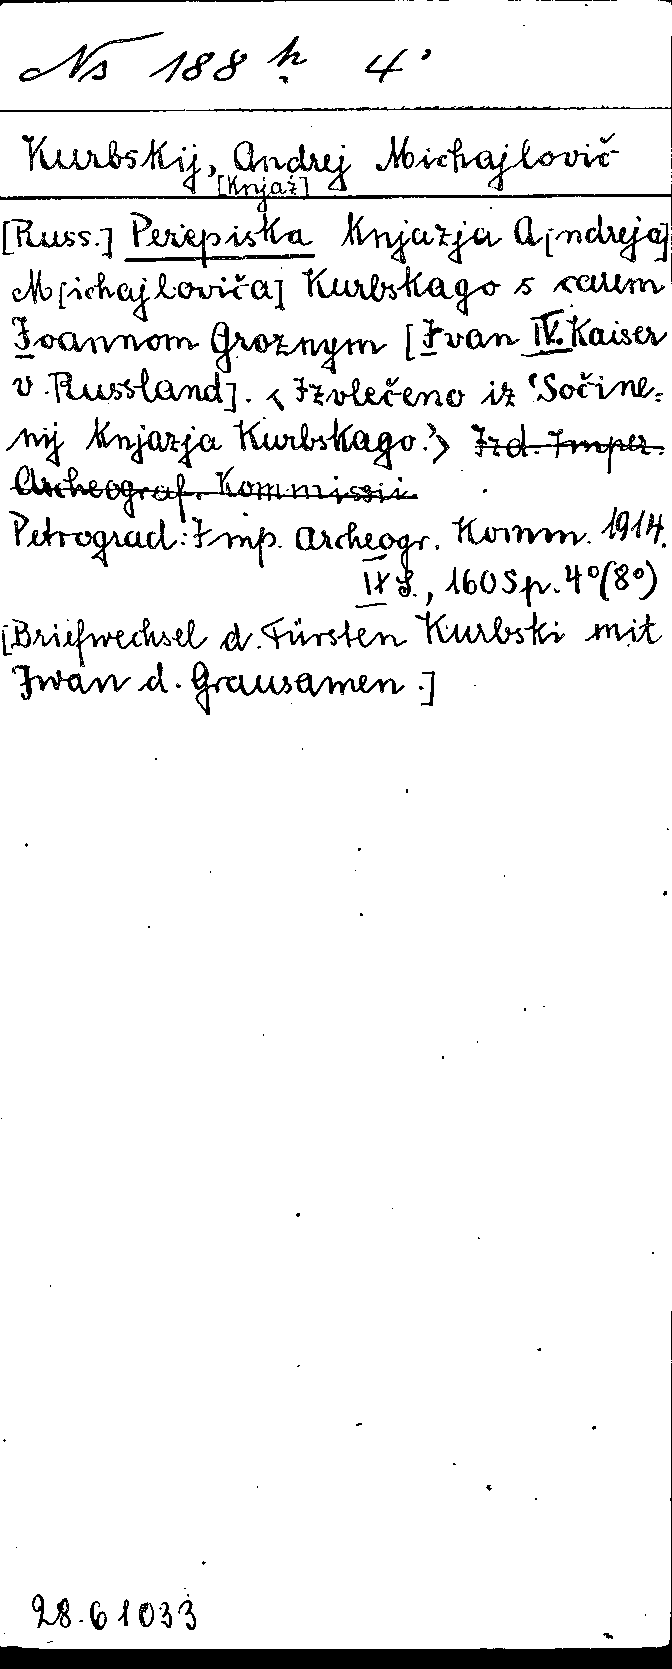 Ns 188 h 4°
Kurbskij, Andrej Michajlovič
[Knjaź]
[Russ.] Perepiska Knjazja A[ndreja]
M[ichajloviča] Kurbskago s carem
Joannom Groznym [Ivan IV. Kaiser
v. Russland]. < Izvlečeno iz 'Sočine=
nij Knjazja Kurbskago.'> Izd. Imper.
Archeograf. Kommissii.
Petrograd: Imp. Archeogr. Komm. 1914.
IX S., 160 Sp. 4°(8°)
[Briefwechsel d. Fürsten Kurbski mit
Iwan d. Grausamen.]
28.61033